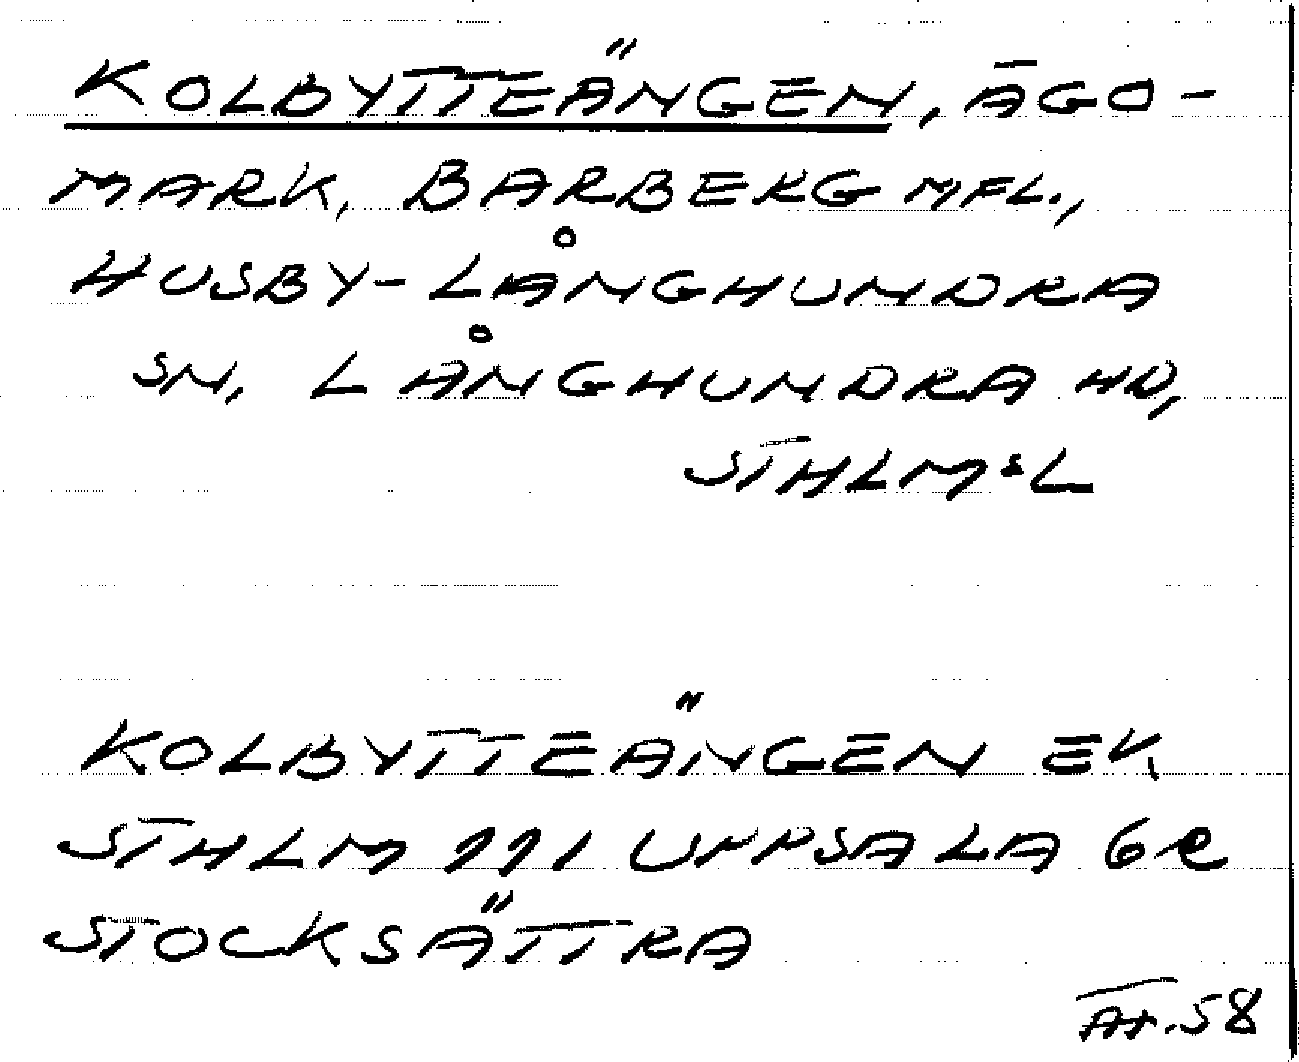 KOLBYTTEÄNGEN, ÄGO-
MARK, BARBERG MFL.,
HUSBY-LÅNGHUNDRA
SN, LÅNGHUNDRA HD,
STHLMSL
KOLBYTTEÄNGEN EK
STHLM 111 UPPSALA 6R
STOCKSÄTTRA
58